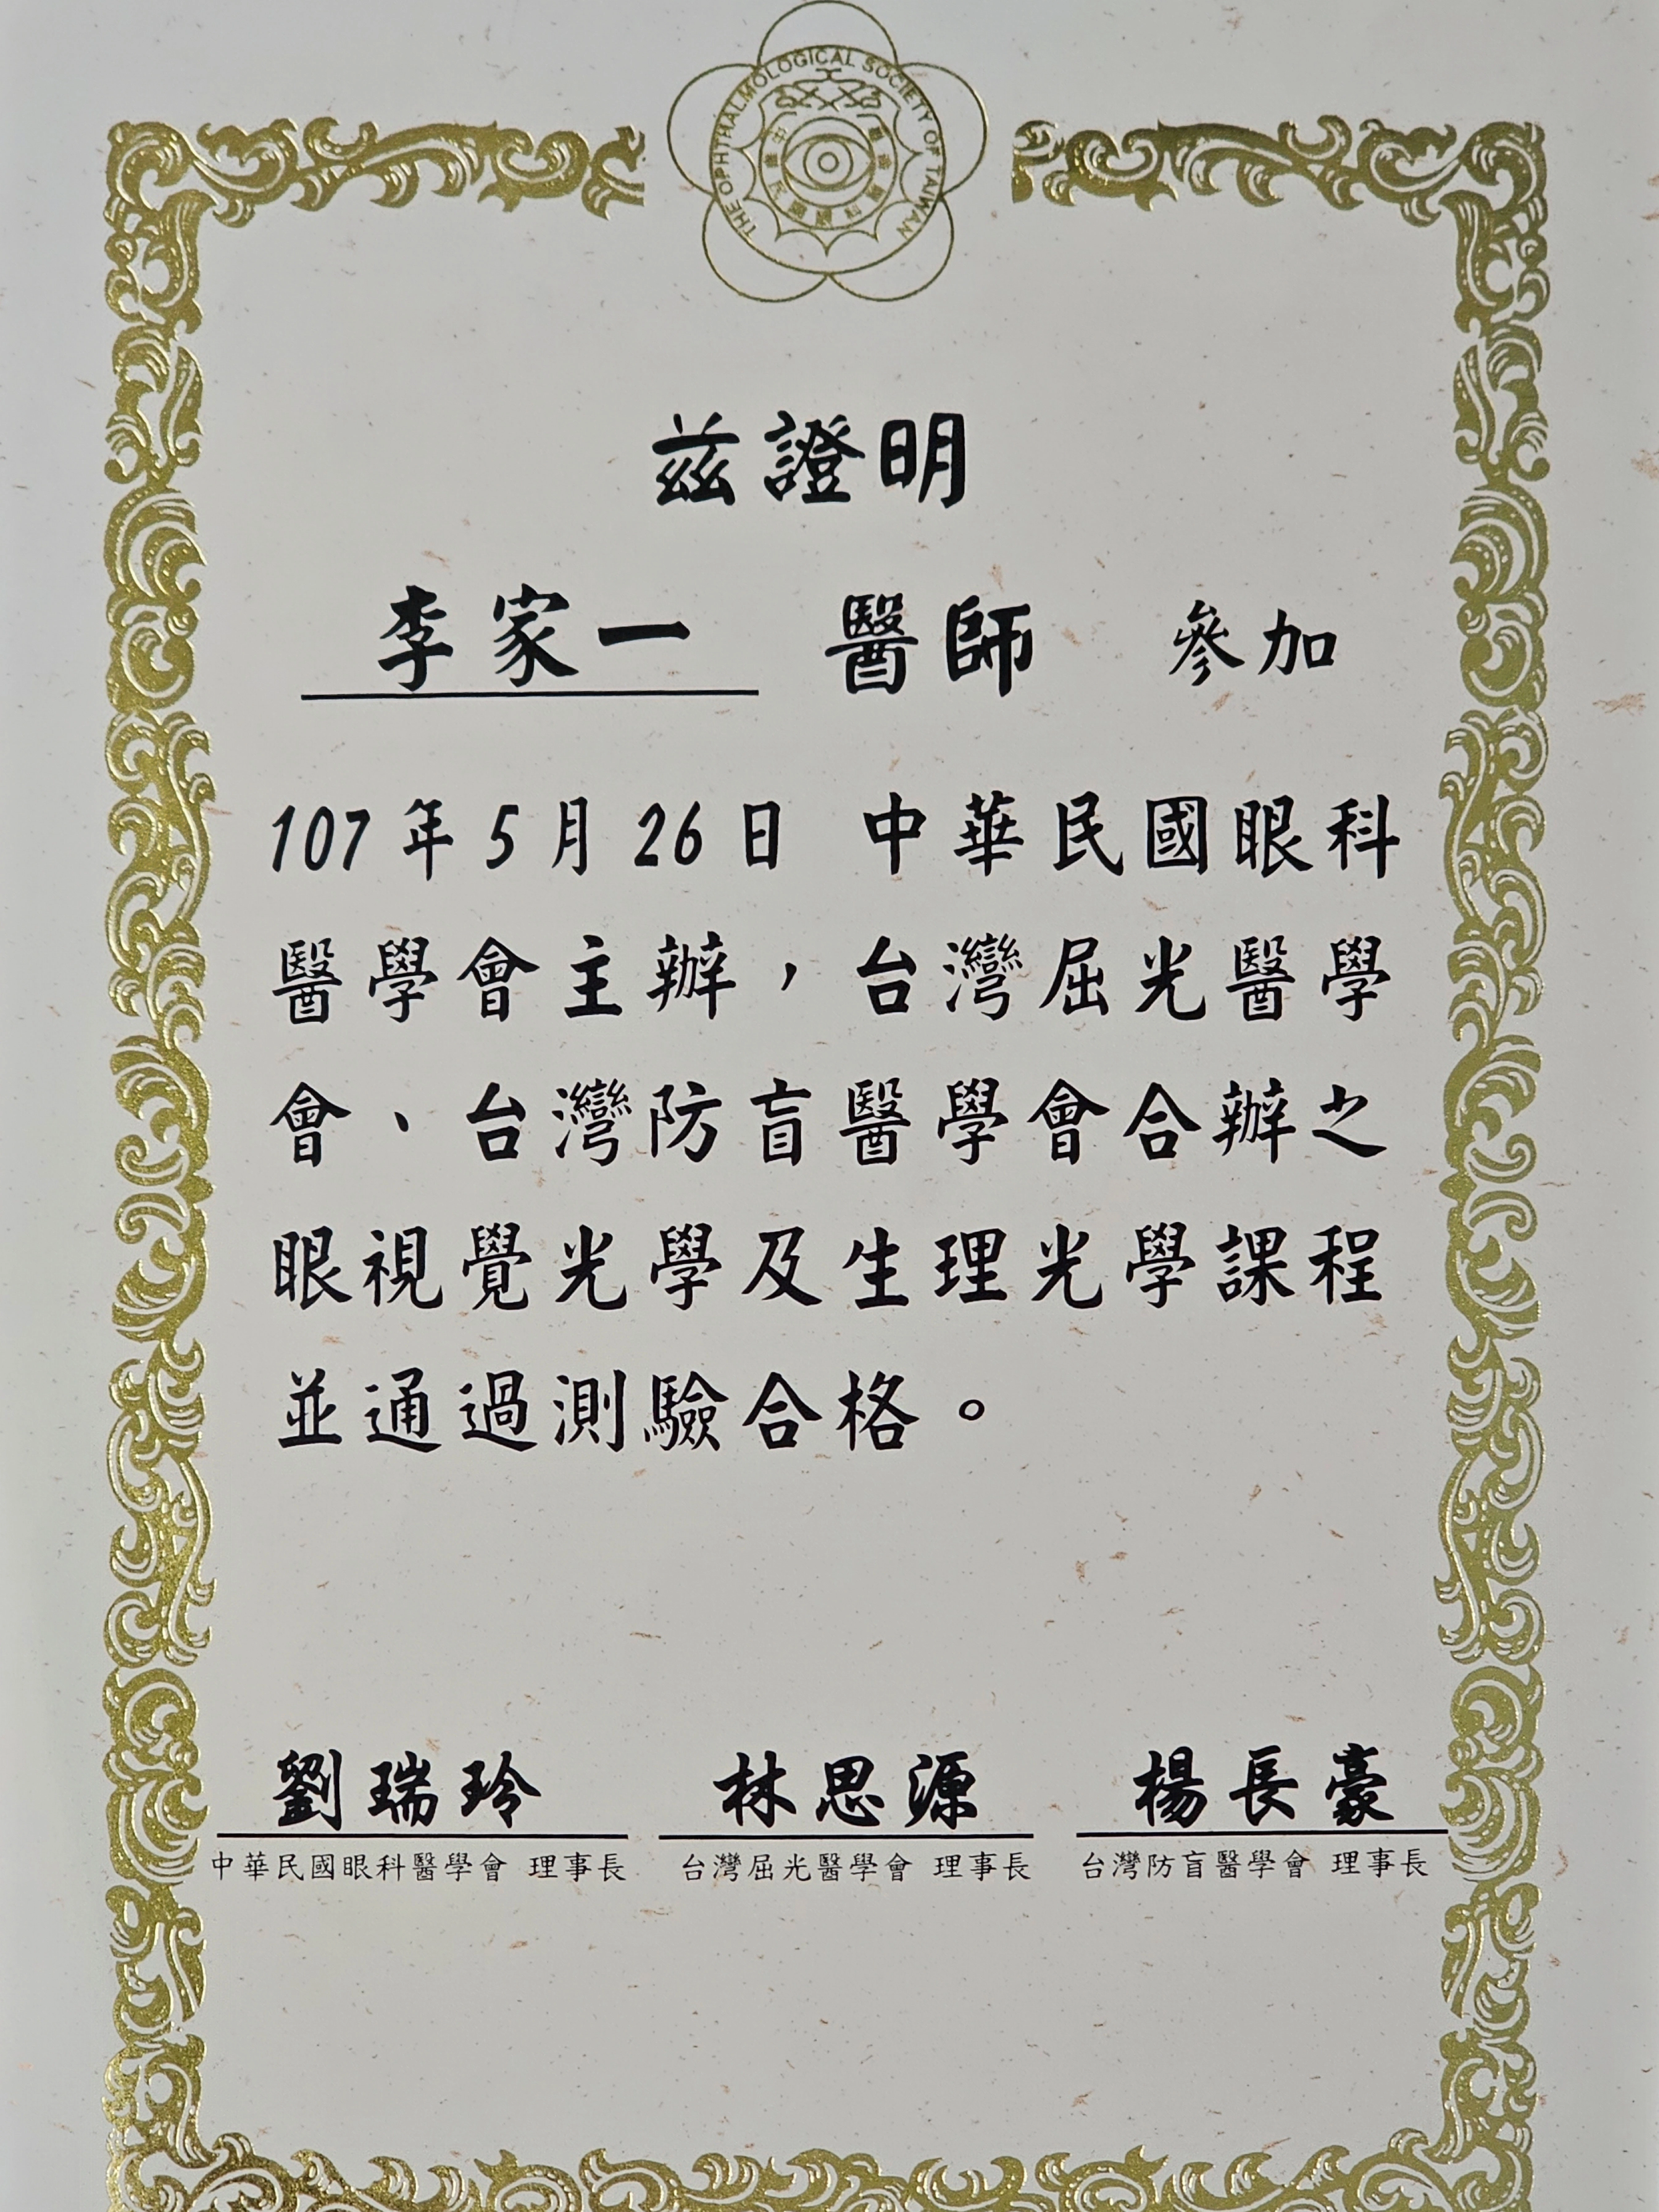 THE OPHTHALMOLOGICAL SOCIETY OF TAIWAN
茲證明
李家一 醫師 參加
107年5月26日 中華民國眼科
醫學會主辦，台灣屈光醫學
會、台灣防盲醫學會合辦之
眼視覺光學及生理光學課程
並通過測驗合格。
劉瑞玲 林思源 楊長豪
中華民國眼科醫學會 理事長 台灣屈光醫學會 理事長 台灣防盲醫學會 理事長